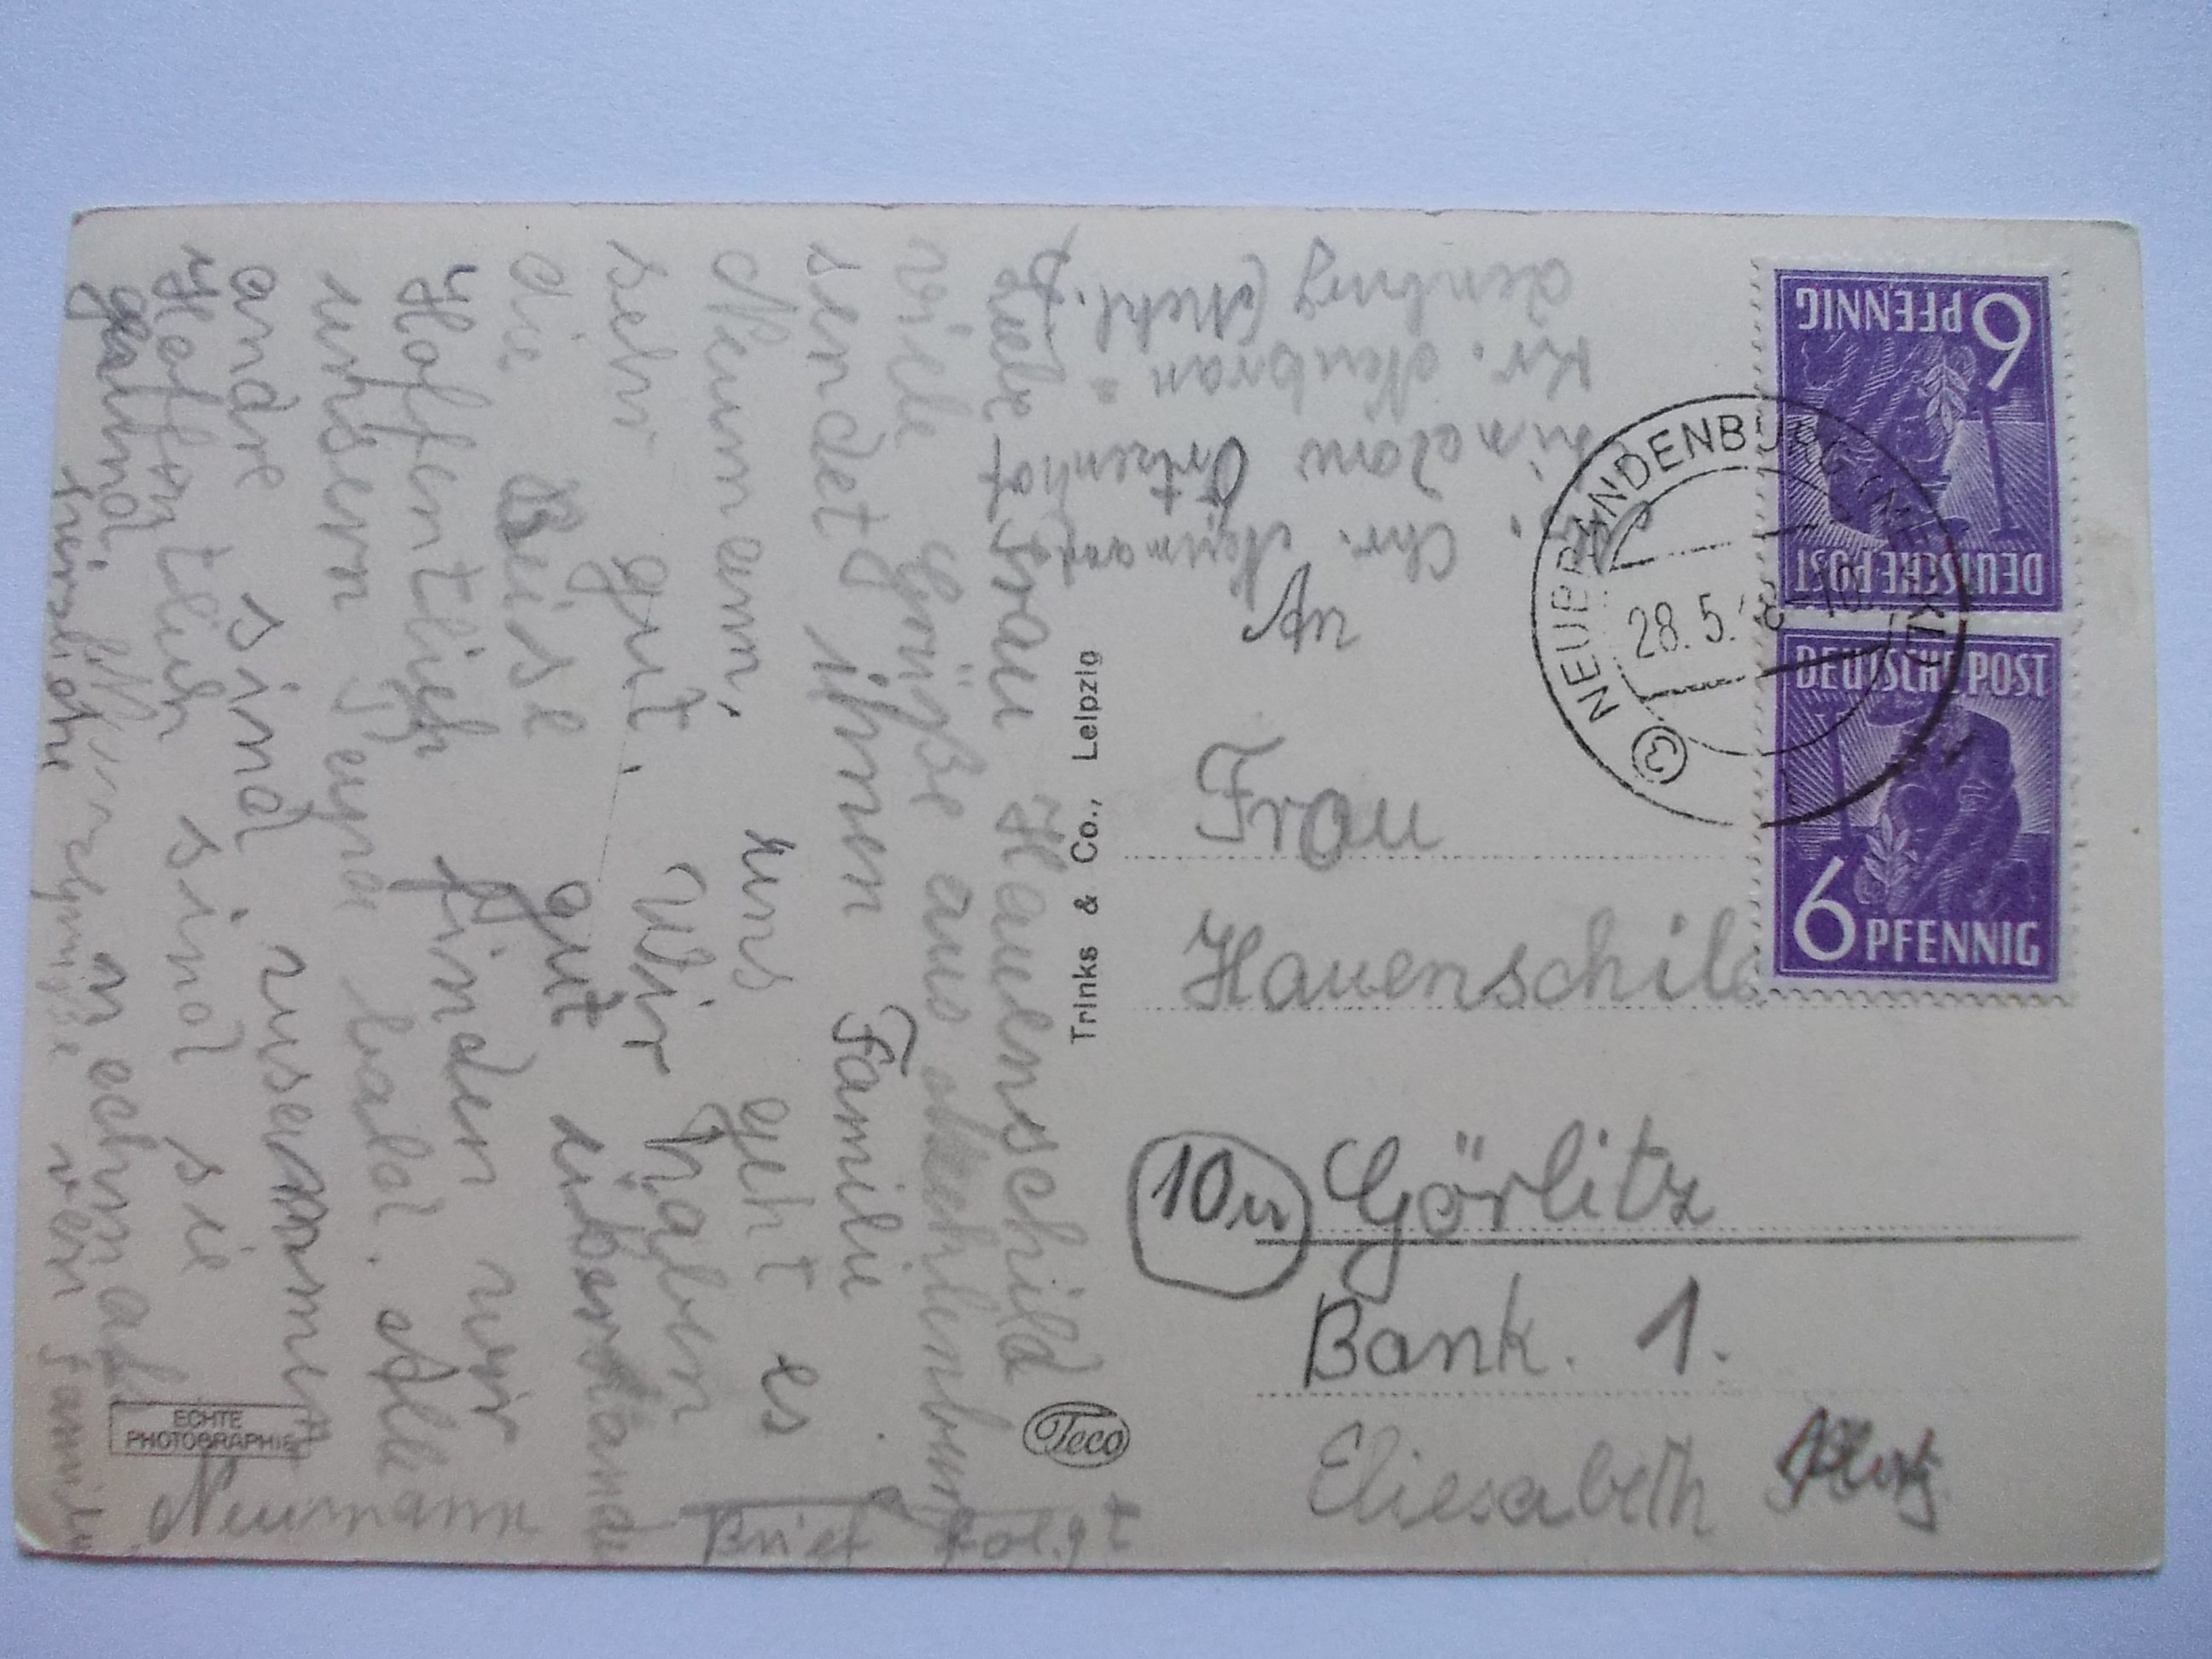 Liebe Frau Hauenschild
viele Grüße aus
sendet ihnen Familie
Neumann, uns geht es
sehr gut. Wir haben
die Reise gut überstand
Hoffentlich finden wir
unsern bald. Alle
andre sind zusammen
Hoffentlich sind sie
gesund, nochmals
herzliche von Familie
Neumann
Brief folgt
Abs. Chr. Neumann
Ortzenhof
Kr. Neubran=
denburg (Meckl.)
Trinks & Co., Leipzig
Teco
ECHTE
PHOTOGRAPHIE
6 PFENNIG
DEUTSCHE POST
DEUTSCHE POST
6 PFENNIG
NEUBRANDENBURG (MECKL)
28.5.48-10
An
Frau
Hauenschild
10 Görlitz
Bank. 1.
Eliesabeth